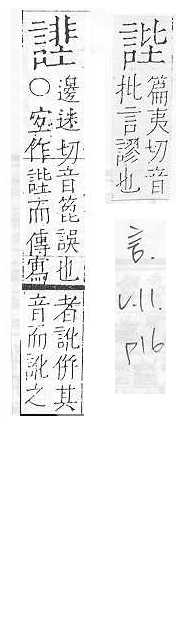 篇夷切音
批言謬也
邊迷切音篦誤也
○宜作 而傳寫
者訛併其
音而訛之
言.
v.11.
p16